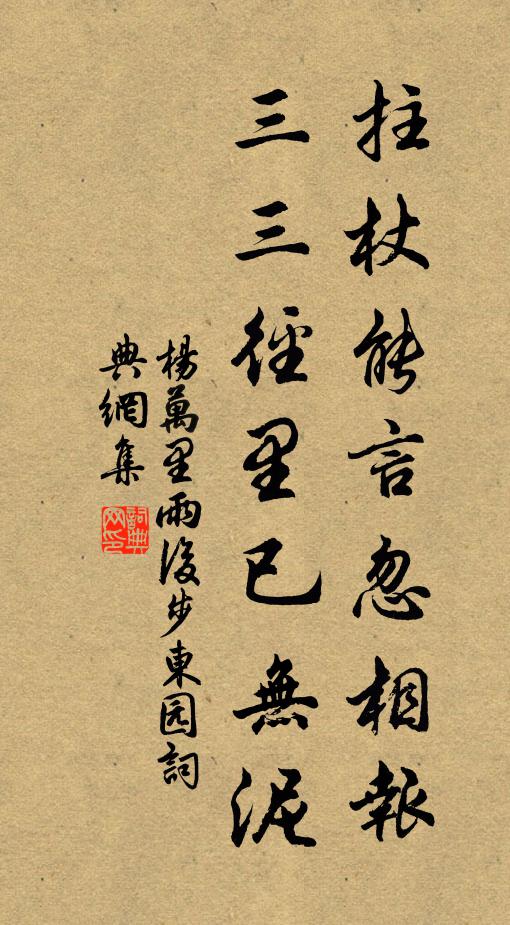 拄杖能言忽相報
三三徑里已無泥
楊萬里雨後步東园詞
典網集
詞典
网印